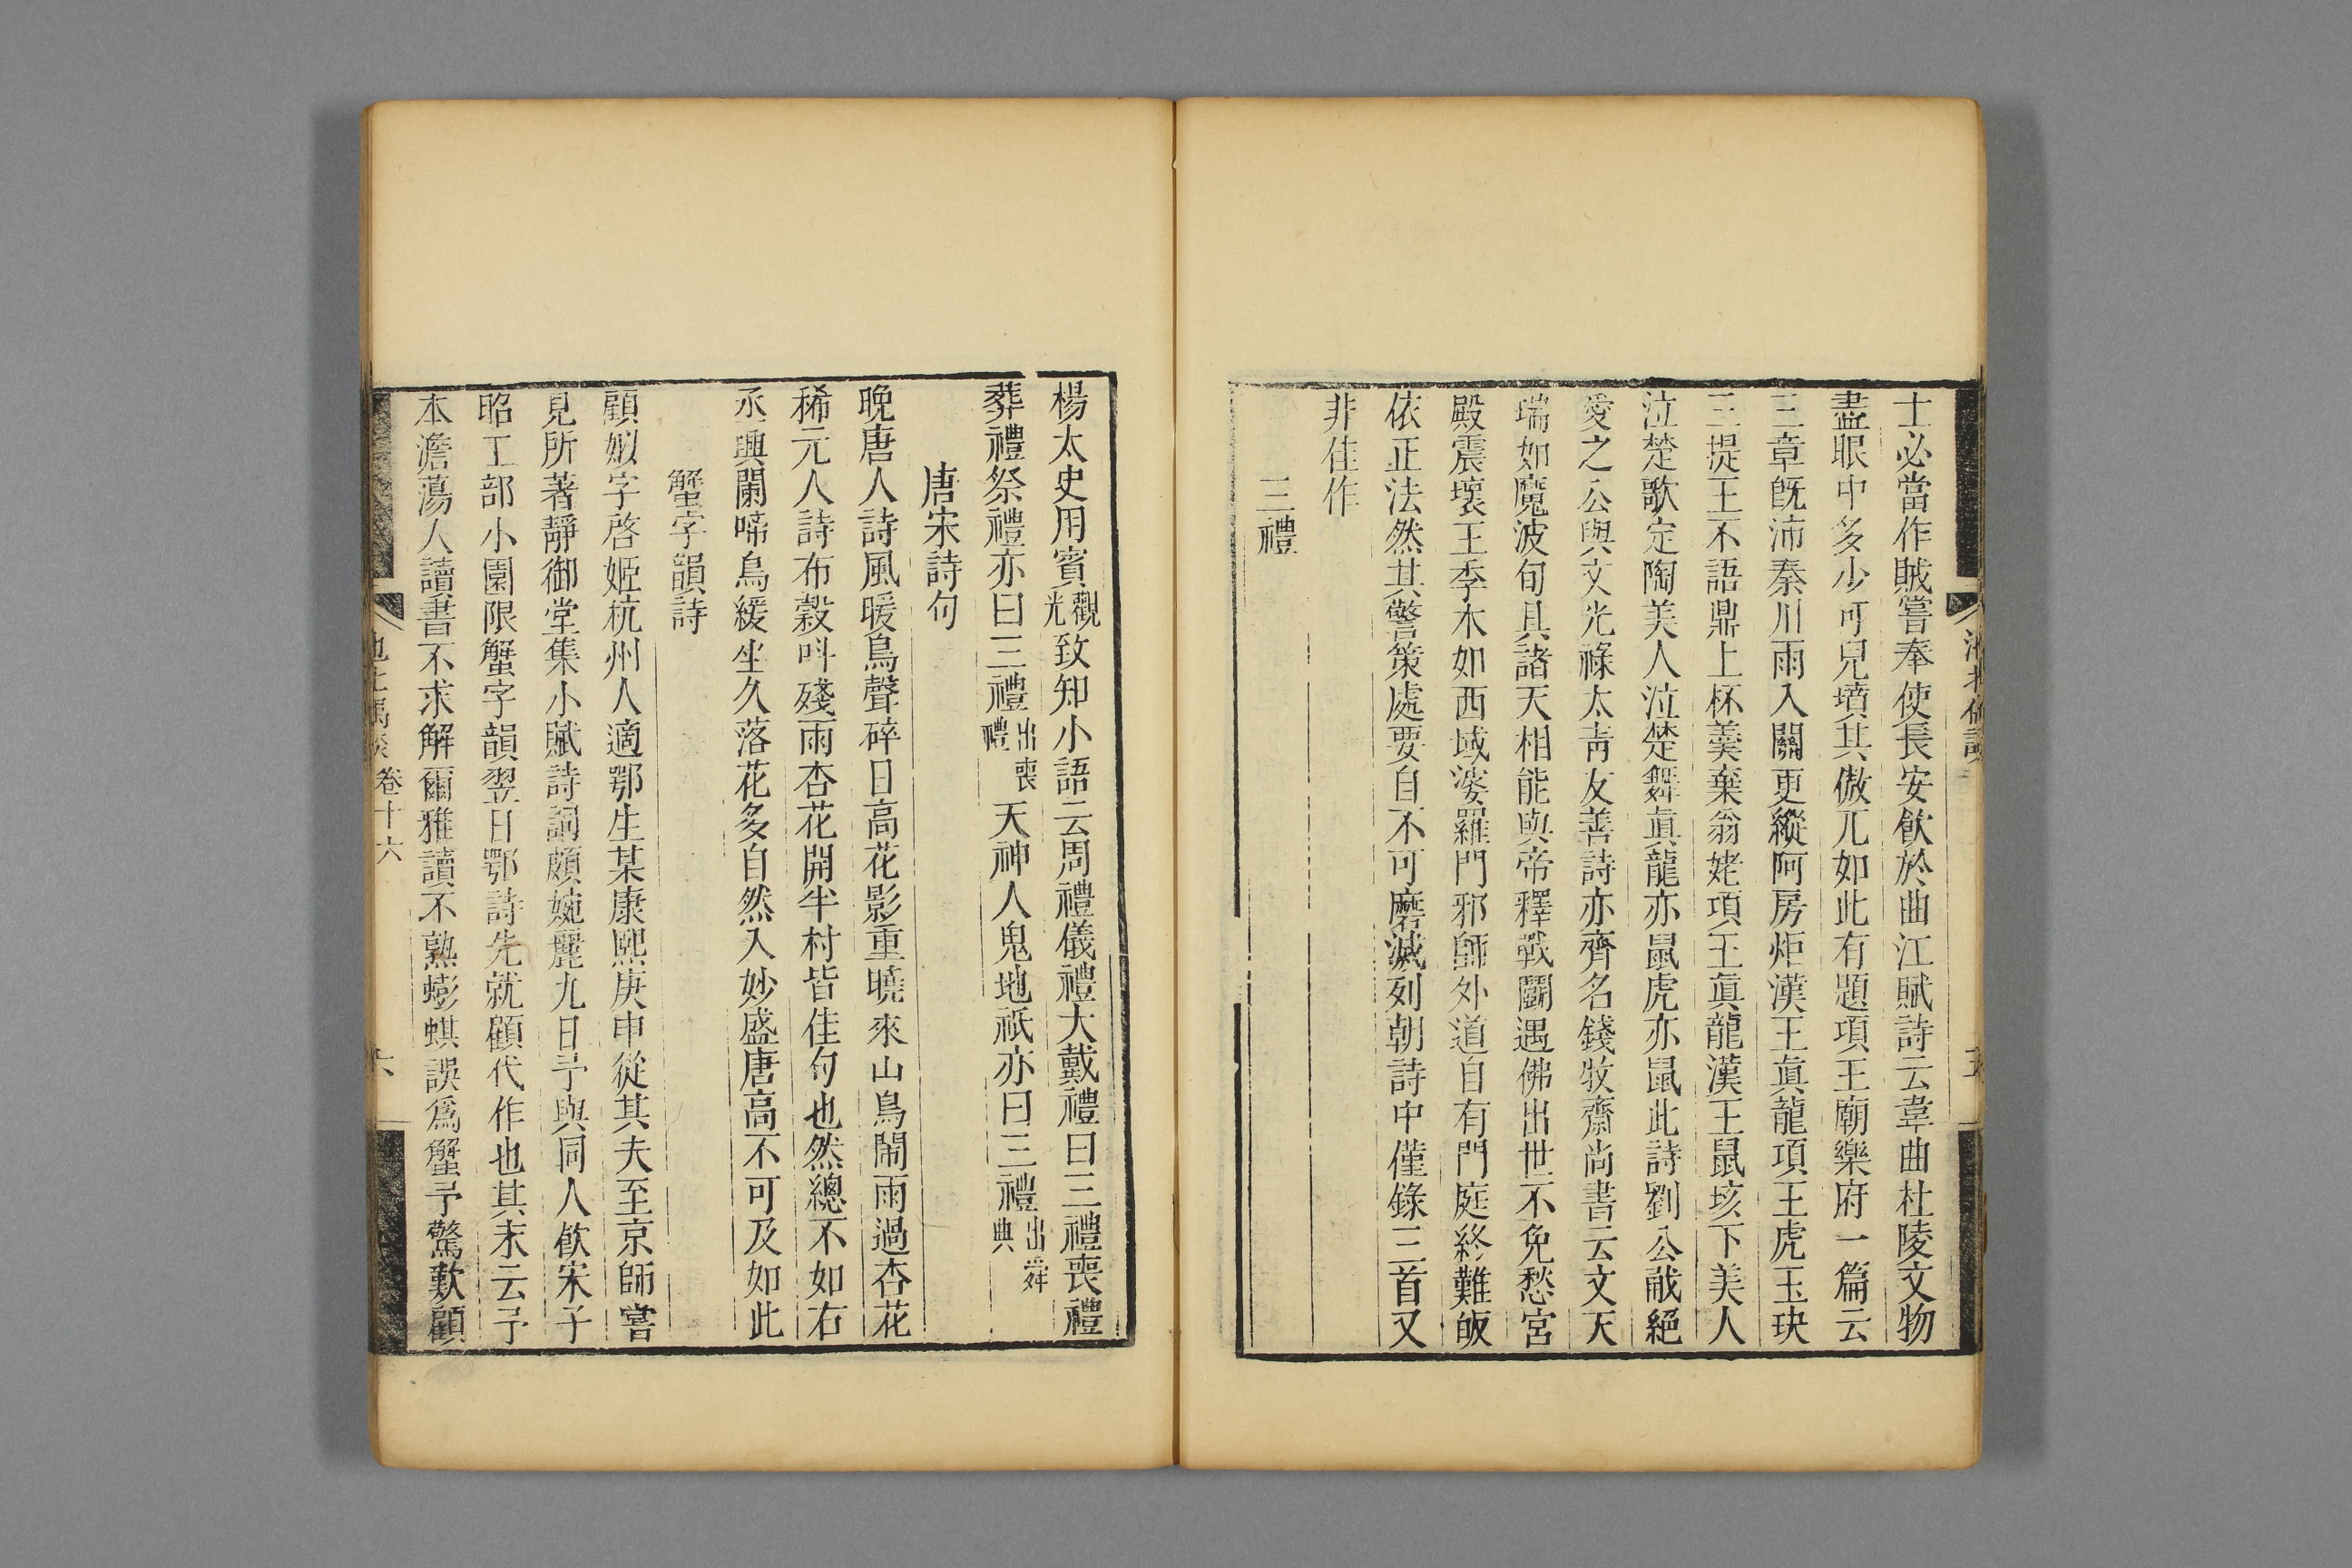 士必當作賊嘗奉使長安飲於曲江賦詩云韋曲杜陵文物
盡眼中多少可兒墳其傲兀如此有題項王廟樂府一篇云
三章既沛秦川雨入關更縱阿房炬漢王眞龍項王虎玉玦
三提王不語鼎上杯羹棄翁姥項王眞龍漢王鼠垓下美人
泣楚歌定陶美人泣楚舞眞龍亦鼠虎亦鼠此詩劉公㦸絕
愛之公與文光祿太靑友善詩亦齊名錢牧齋尚書云文天
瑞如魔波旬具諸天相能與帝釋戰鬭遇佛出世不免愁宮
殿震壞王季木如西域婆羅門邪師外道自有門庭終難皈
依正法然其警策處要自不可磨滅列朝詩中僅錄三首又
非佳作
三禮
楊太史用賓觀光致知小語云周禮儀禮大戴禮曰三禮喪禮
葬禮祭禮亦曰三禮出喪禮天神人鬼地祇亦曰三禮出舜典
唐宋詩句
晚唐人詩風暖鳥聲碎日高花影重曉來山鳥鬧雨過杏花
稀元人詩布穀呌殘雨杏花開半村皆佳句也然總不如右
丞興闌啼鳥緩坐久落花多自然入妙盛唐高不可及如此
蟹字韻詩
顧姒字啓姬杭州人適鄂生某康熙庚申從其夫至京師嘗
見所著靜御堂集小賦詩詞頗婉麗九日予與同人飲宋子
昭工部小園限蟹字韻翌日鄂詩先就顧代作也其末云予
本澹蕩人讀書不求解爾雅讀不熟蟛蜞誤爲蟹予驚歎顧
卷十六
六
五